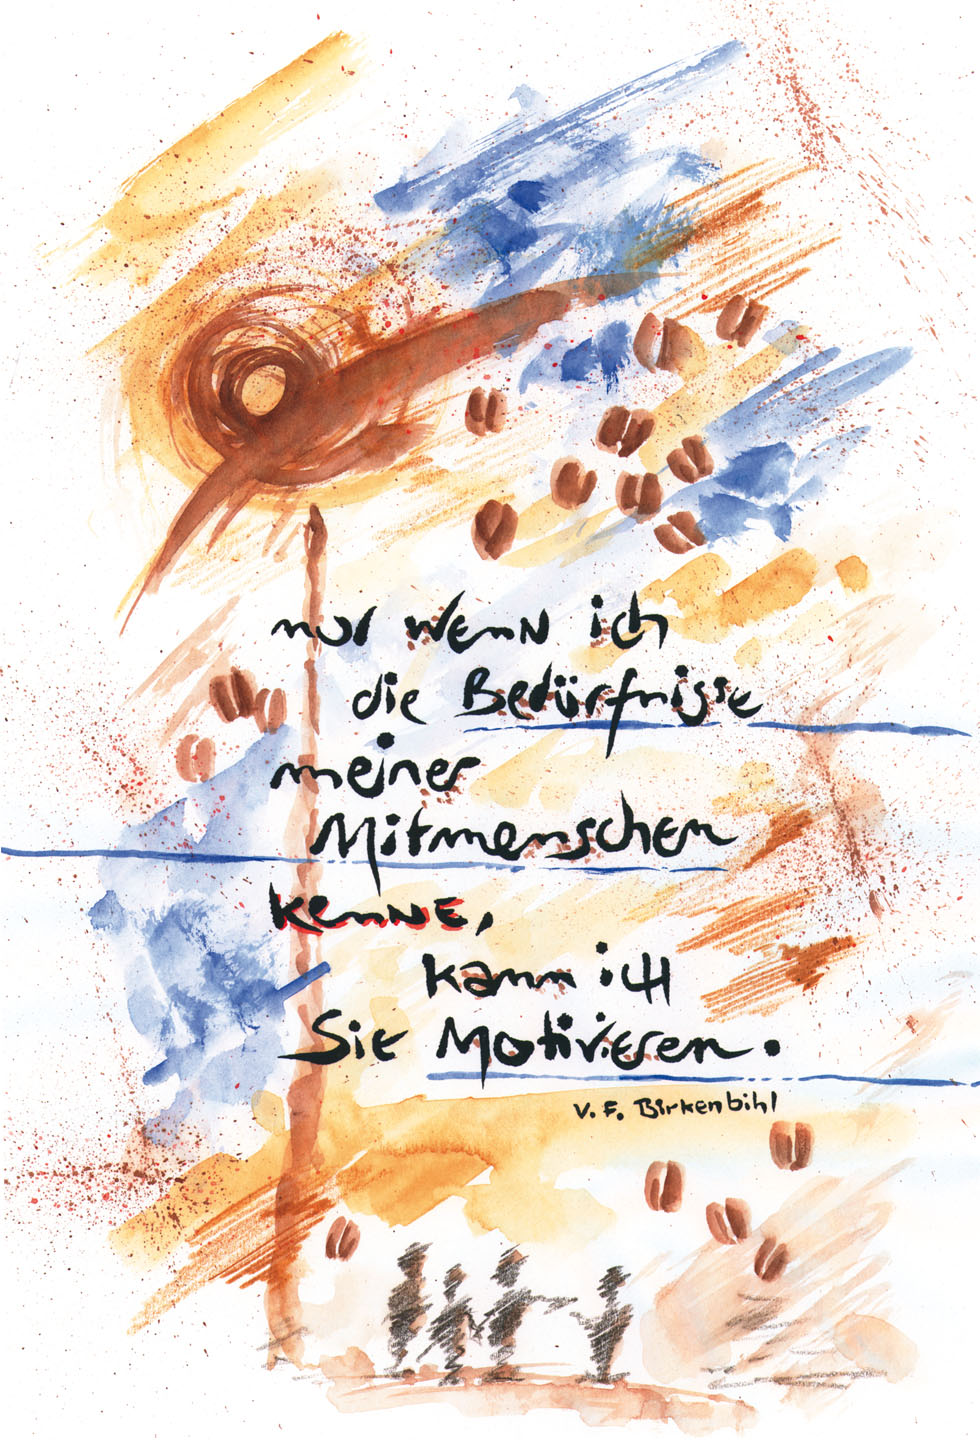 nur wenn ich
die Bedürfnisse
meiner
Mitmenschen
kenne,
kann ich
Sie Motivieren.
V. F. Birkenbihl